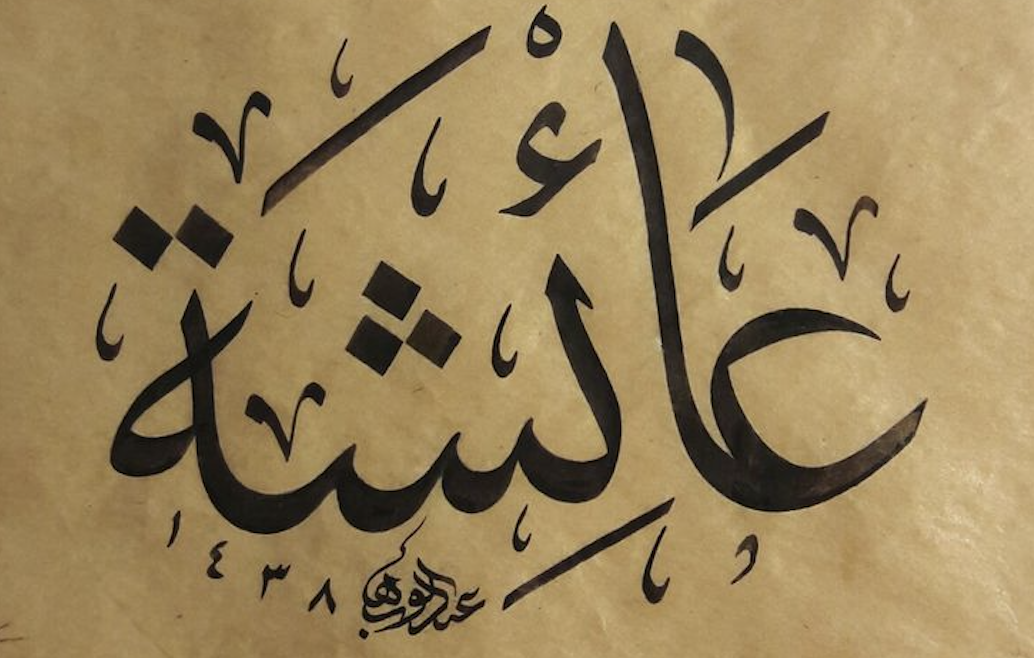 عَائِشَة
عبدالوهاب ١٤٣٨